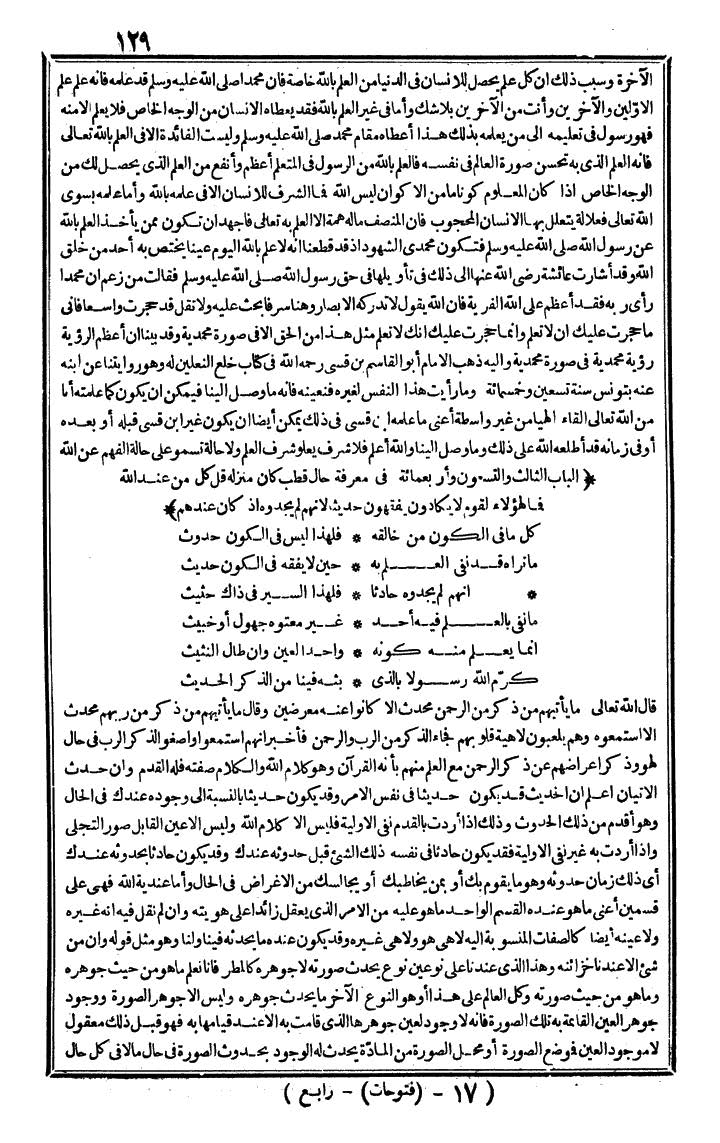 ١٢٩
الآخرة وسبب ذلك ان كل علم يحصل للانسان فى الدنيا من العلم بالله خاصة فان محمدا صلى الله عليه وسلم قد علمه فانه علم علم
الاوّلين والآخرين وأنت من الآخرين بلاشك وأما فى غير العلم بالله فقد يعطاه الانسان من الوجه الخاص فلا يعلم الامنه
فهو رسول فى تعليمه الى من يعلمه بذلك هذا أعطاه مقام محمد صلى الله عليه وسلم وليست الفائدة الا فى العلم بالله تعالى
فانه العلم الذى به تحسن صورة العالم فى نفسه فالعلم بالله من الرسول فى المتعلم أعظم وأنفع من العلم الذى يحصل لك من
الوجه الخاص اذا كان المعلوم كونا ما من الاكوان ليس الله فما الشرف للانسان الا فى علمه بالله وأما علمه بسوى
الله تعالى فعلالة يتعلل بها الانسان المحجوب فان المنصف ماله همة الا العلم به تعالى فاجهد ان تكون ممن يأخذ العلم بالله
عن رسول الله صلى الله عليه وسلم فتكون محمدى الشهود اذ قد قطعنا انه لا علم بالله اليوم عينا يختص به أحد من خلق
الله وقد أشارت عائشة رضى الله عنها الى ذلك فى تأويلها فى حق رسول الله صلى الله عليه وسلم فقالت من زعم ان محمدا
رأى ربه فقد أعظم على الله الفرية فان الله يقول لا تدركه الابصار وهنا سر فابحث عليه ولا تقل قد حجرت واسعا فانى
ما حجرت عليك ان لا تعلم وانما حجرت عليك انك لا تعلم مثل هذا من الحق الا فى صورة محمدية وقد بينا ان أعظم الرؤية
رؤية محمدية فى صورة محمدية واليه ذهب الامام أبو القاسم بن قسى رحمه الله فى كتاب خلع النعلين له وهو روايتنا عن ابنه
عنه بتونس سنة تسعين وخمسمائة وما رأيت هذا النفس لغيره فنعينه فانه ما وصل الينا فيمكن ان يكون كما علمته أنا
من الله تعالى القاء الهيا من غير واسطة أعنى ما علمه ابن قسى فى ذلك يمكن أيضا ان يكون غير ابن قسى قبله أو بعده
أو فى زمانه قد أطلعه الله على ذلك وما وصل الينا والله أعلم فلا شرف يعلو شرف العلم ولا حالة تسمو على حالة الفهم عن الله
﴿الباب الثالث والتسعون وأربعمائة فى معرفة حال قطب كان منزله قل كل من عند الله
فما لهؤلاء القوم لا يكادون يفقهون حديثا لانهم لم يجدوه اذ كان عندهم﴾
كل ما فى الكون من خالقه * فلهذا ليس فى الكون حدوث
ما تراه قد نفى العلم به * حين لا يفقه فى الكون حديث
* انهم لم يجدوه حادثا * فلهذا السير فى ذاك حثيث
ما نفى بالعلم فيه أحد * غير معتوه جهول أو خبيث
انما يعلم منه كونه * واحد العين وان طال النثيث
كرّم الله رسولا بالذى * بثه فينا من الذكر الحديث
قال الله تعالى ما يأتيهم من ذكر من الرحمن محدث الا كانوا عنه معرضين وقال ما يأتيهم من ذكر من ربهم محدث
الا استمعوه وهم يلعبون لاهية قلوبهم فجاء الذكر من الرب والرحمن فأخبر انهم استمعوا واصغو الذكر الرب فى حال
لهو وذكر اعراضهم عن ذكر الرحمن مع العلم منهم بأنه القرآن وهو كلام الله والكلام صفته فله القدم وان حدث
الاتيان اعلم ان الحديث قد يكون حديثا فى نفس الامر وقد يكون حديثا بالنسبة الى وجوده عندك فى الحال
وهو أقدم من ذلك الحدوث وذلك اذا أردت بالقدم نفى الاولية فليس الا كلام الله وليس الا عين القابل صور التجلى
واذا أردت به غير نفى الاولية فقد يكون حادثا فى نفسه ذلك الشئ قبل حدوثه عندك وقد يكون حادثا بحدوثه عندك
أى ذلك زمان حدوثه وهو ما يقوم بك أو بمن يخاطبك أو يجالسك من الاغراض فى الحال وأما عندية الله فهى على
قسمين أعنى ما هو عنده القسم الواحد ما هو عليه من الامر الذى يعقل زائدا على هويته وان لم نقل فيه انه غيره
ولا عينه أيضا كالصفات المنسوبة اليه لا هى هو ولا هى غيره وقد يكون عنده ما يحدثه فينا ولنا وهو مثل قوله وان من
شئ الا عندنا خزائنه وهذا الذى عندنا على نوعين نوع يحدث صورته لا جوهره كالمطر فانا نعلم ما هو من حيث جوهره
وما هو من حيث صورته وكل العالم على هذا أو هو النوع الآخر ما يحدث جوهره وليس الا جوهر الصورة ووجود
جوهر العين القائمة به تلك الصورة فانه لا وجود لعين جوهرها الذى قامت به الا عند قيامها به فهو قبل ذلك معقول
لا موجود العين فوضع الصورة أو محل الصورة من المادّة يحدث له الوجود بحدوث الصورة فى حال ما لا فى كل حال
( ١٧ - (فتوحات) - رابع )